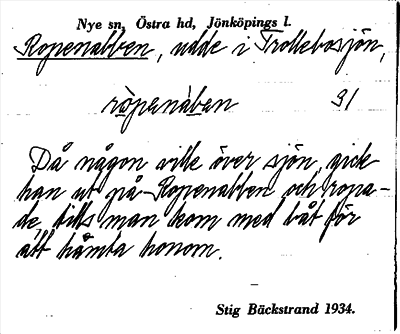 Nye sn, Östra hd, Jönköpings l.
Ropenabben, udde i Trollebosjön,
ròpenàben 31
Då någon ville över sjön, gick
han ut på Ropenabben och ropa-
de, tills man kom med båt för
att hämta honom.
Stig Bäckstrand 1934.